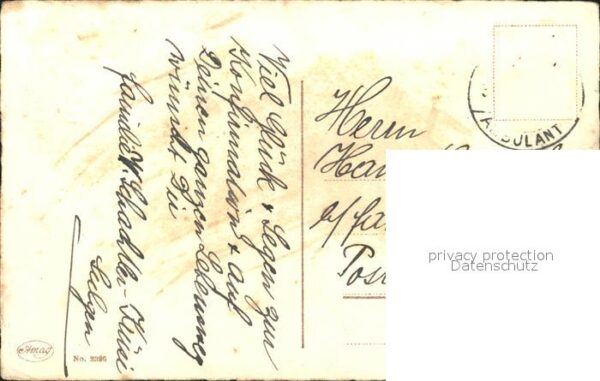 Viel Glück & Segen zur
Konfirmation & auf
Deinen ganzen Lebensweg
wünscht Dir
Familie
Sulgen
Herrn
Post
AMBULANT
privacy protection
Datenschutz
Amag
No. 2396